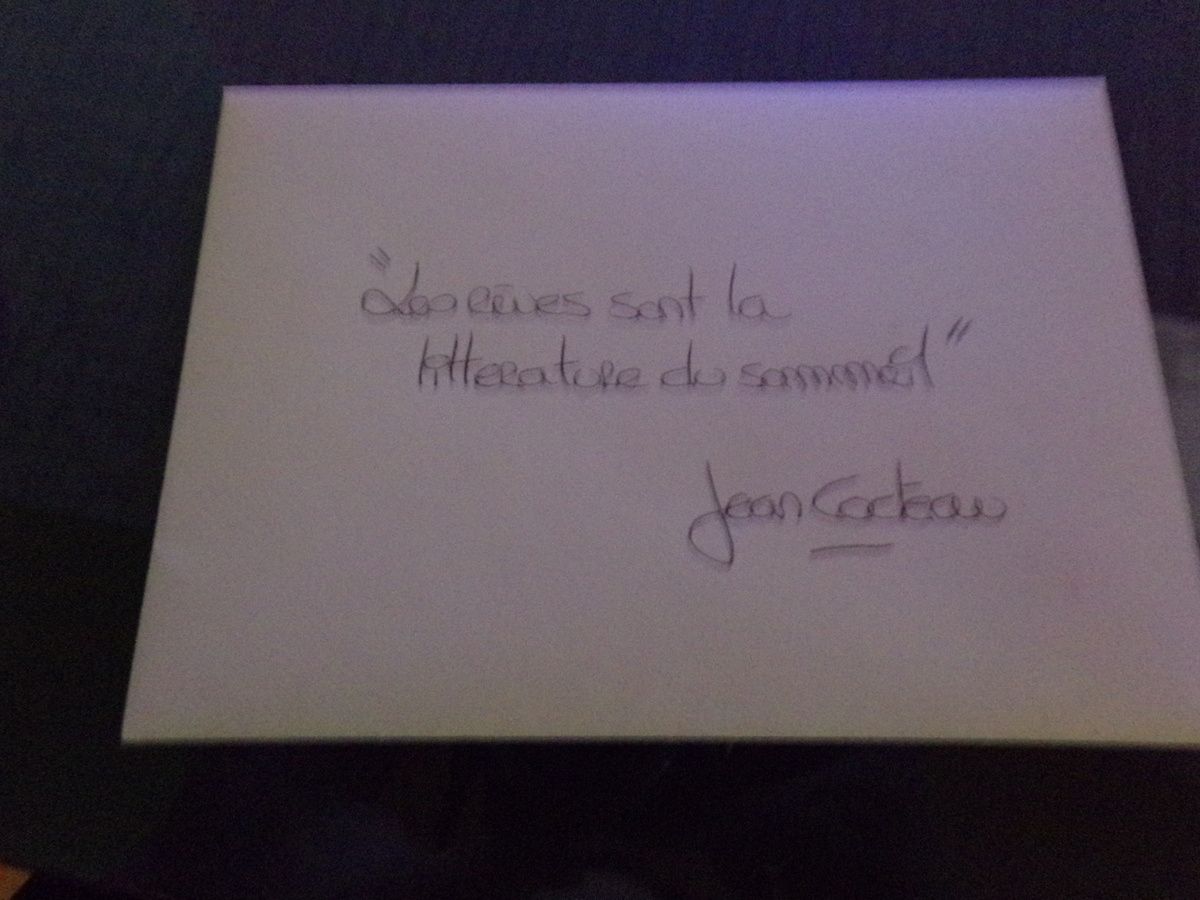 "Les rêves sont la
litterature du sommeil"
Jean Cocteau